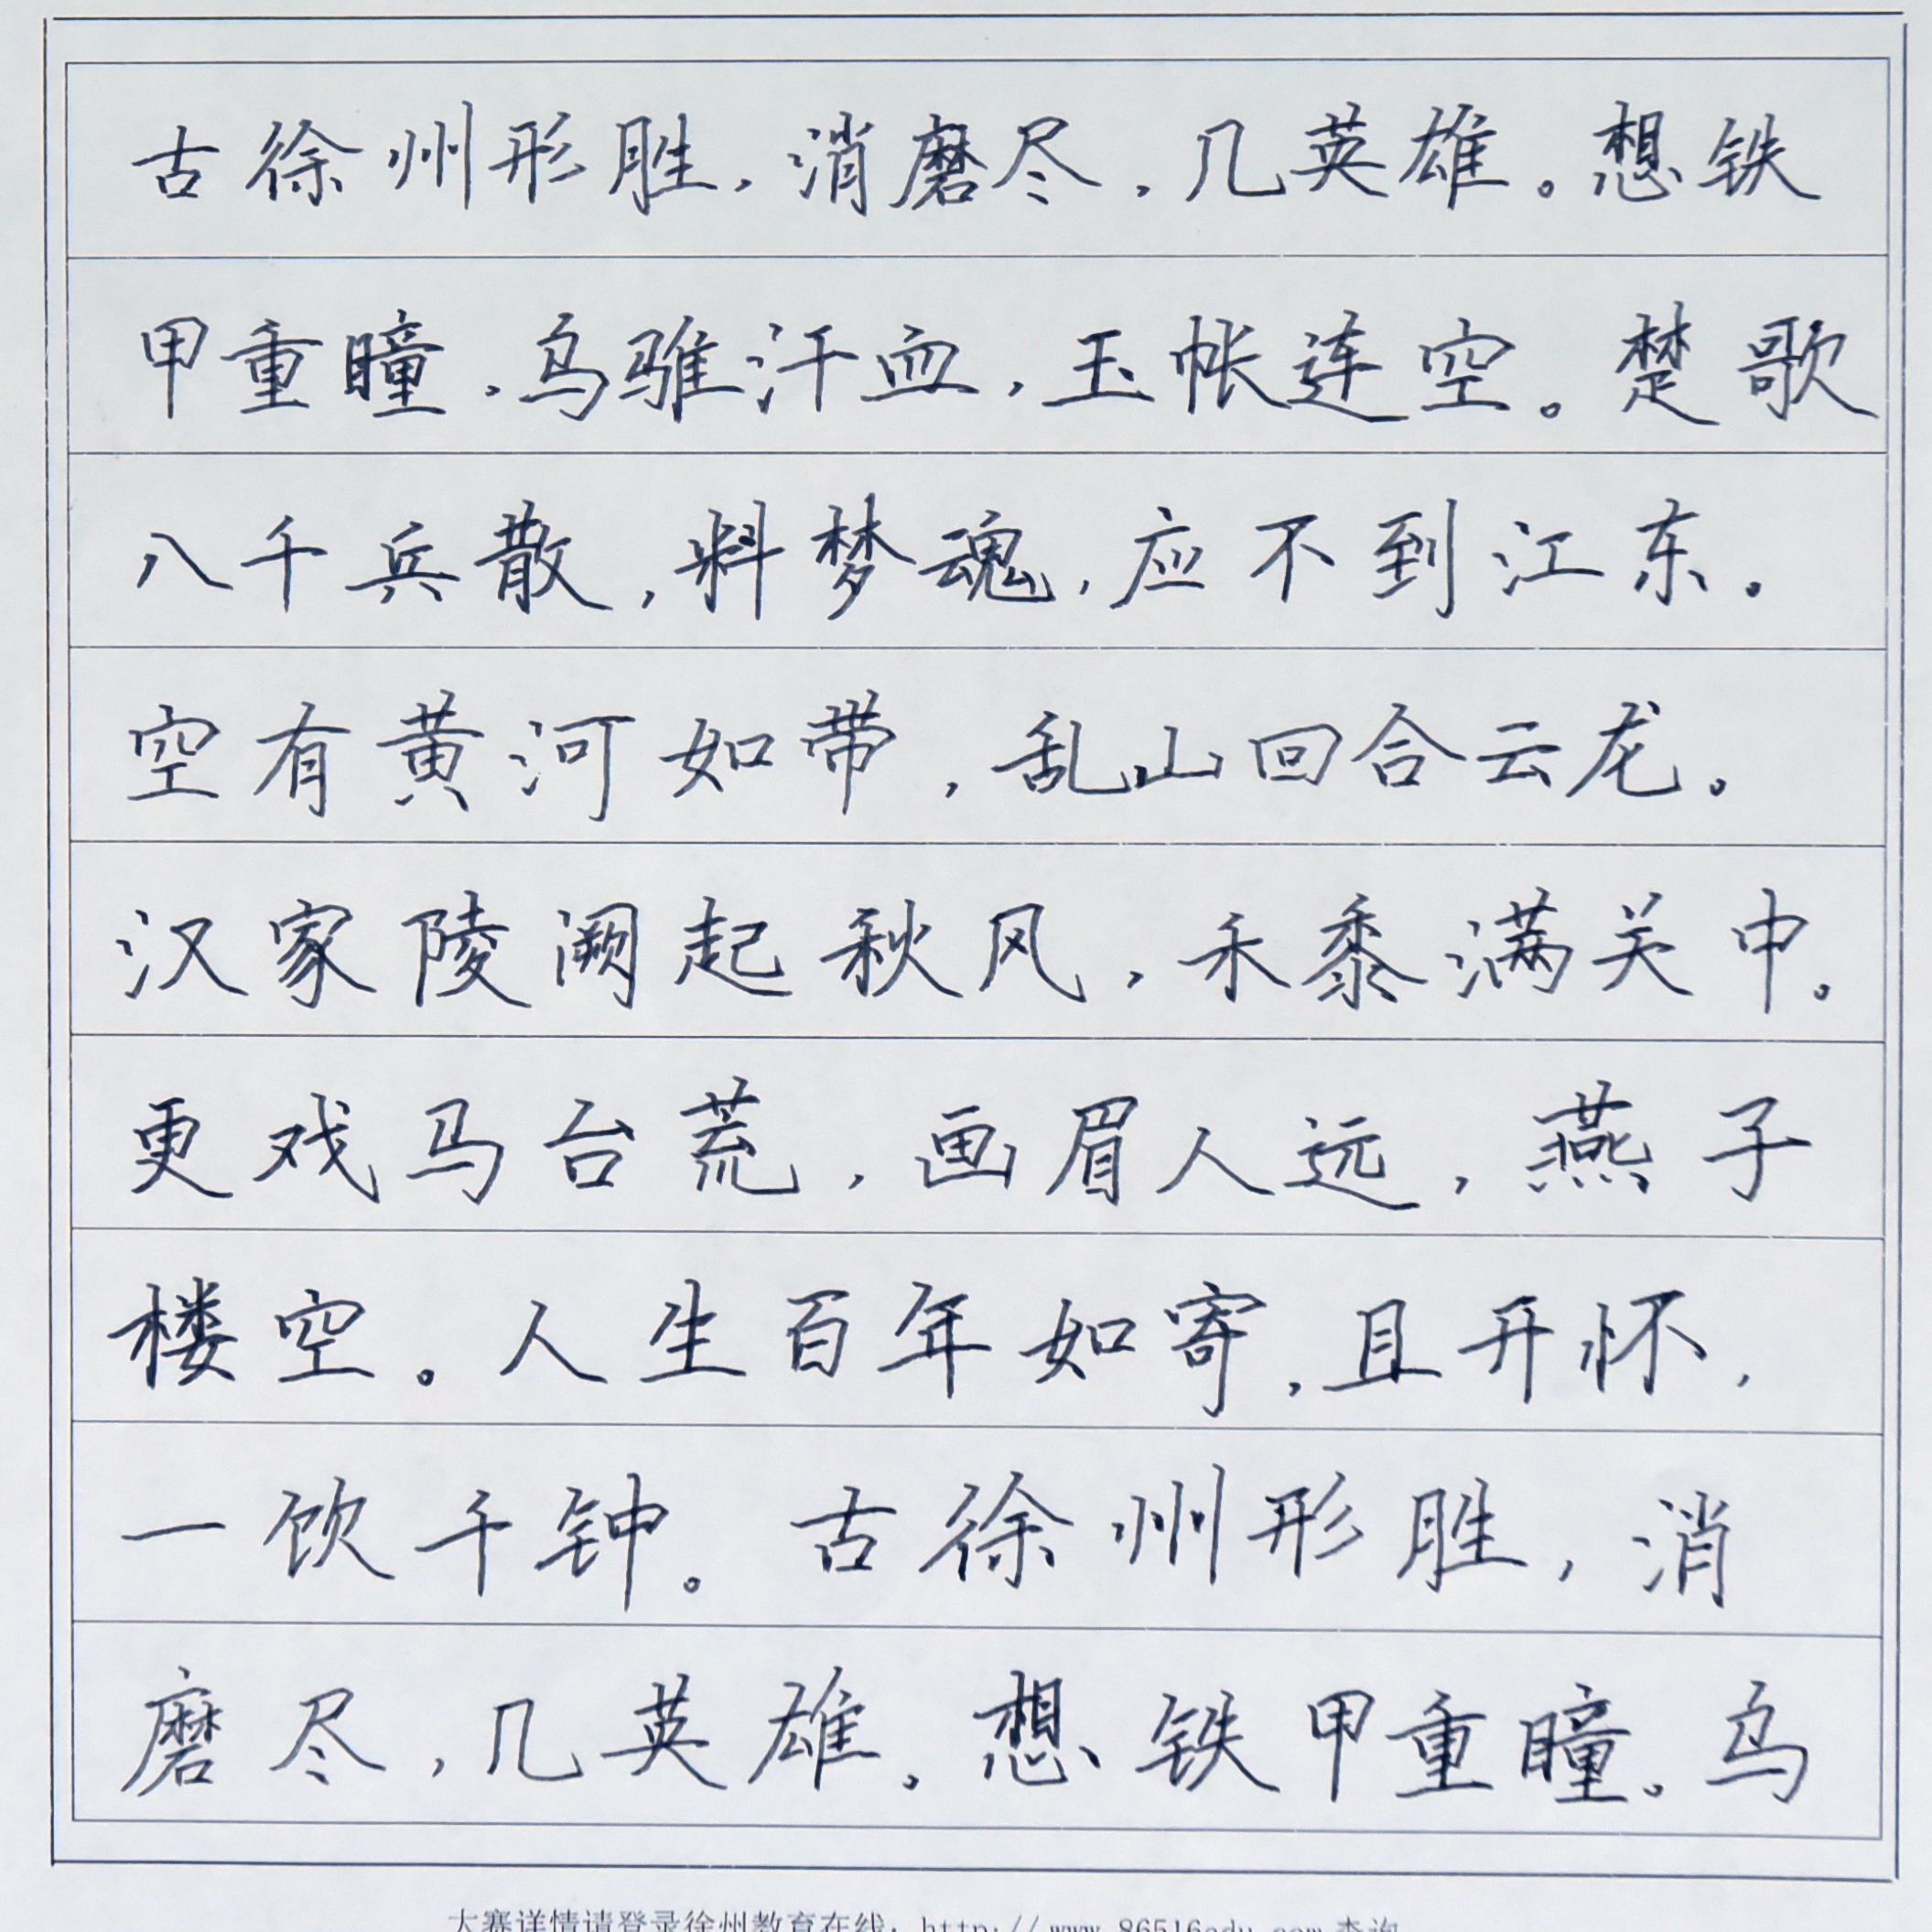 古徐州形胜，消磨尽，几英雄。想铁
甲重瞳，乌骓汗血，玉帐连空。楚歌
八千兵散，料梦魂，应不到江东。
空有黄河如带，乱山回合云龙。
汉家陵阙起秋风，禾黍满关中。
更戏马台荒，画眉人远，燕子
楼空。人生百年如寄，且开怀，
一饮千钟。古徐州形胜，消
磨尽，几英雄。想铁甲重瞳。乌
大赛详情请登录徐州教育在线：http://www.86516edu.com查询